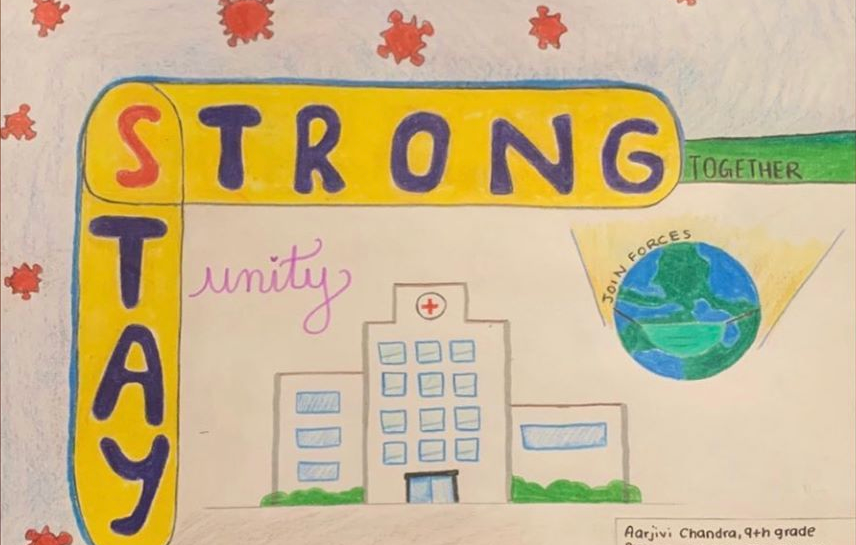 STRONG
TAY
TOGETHER
unity
JOIN FORCES
Aarjivi Chandra, 9th grade